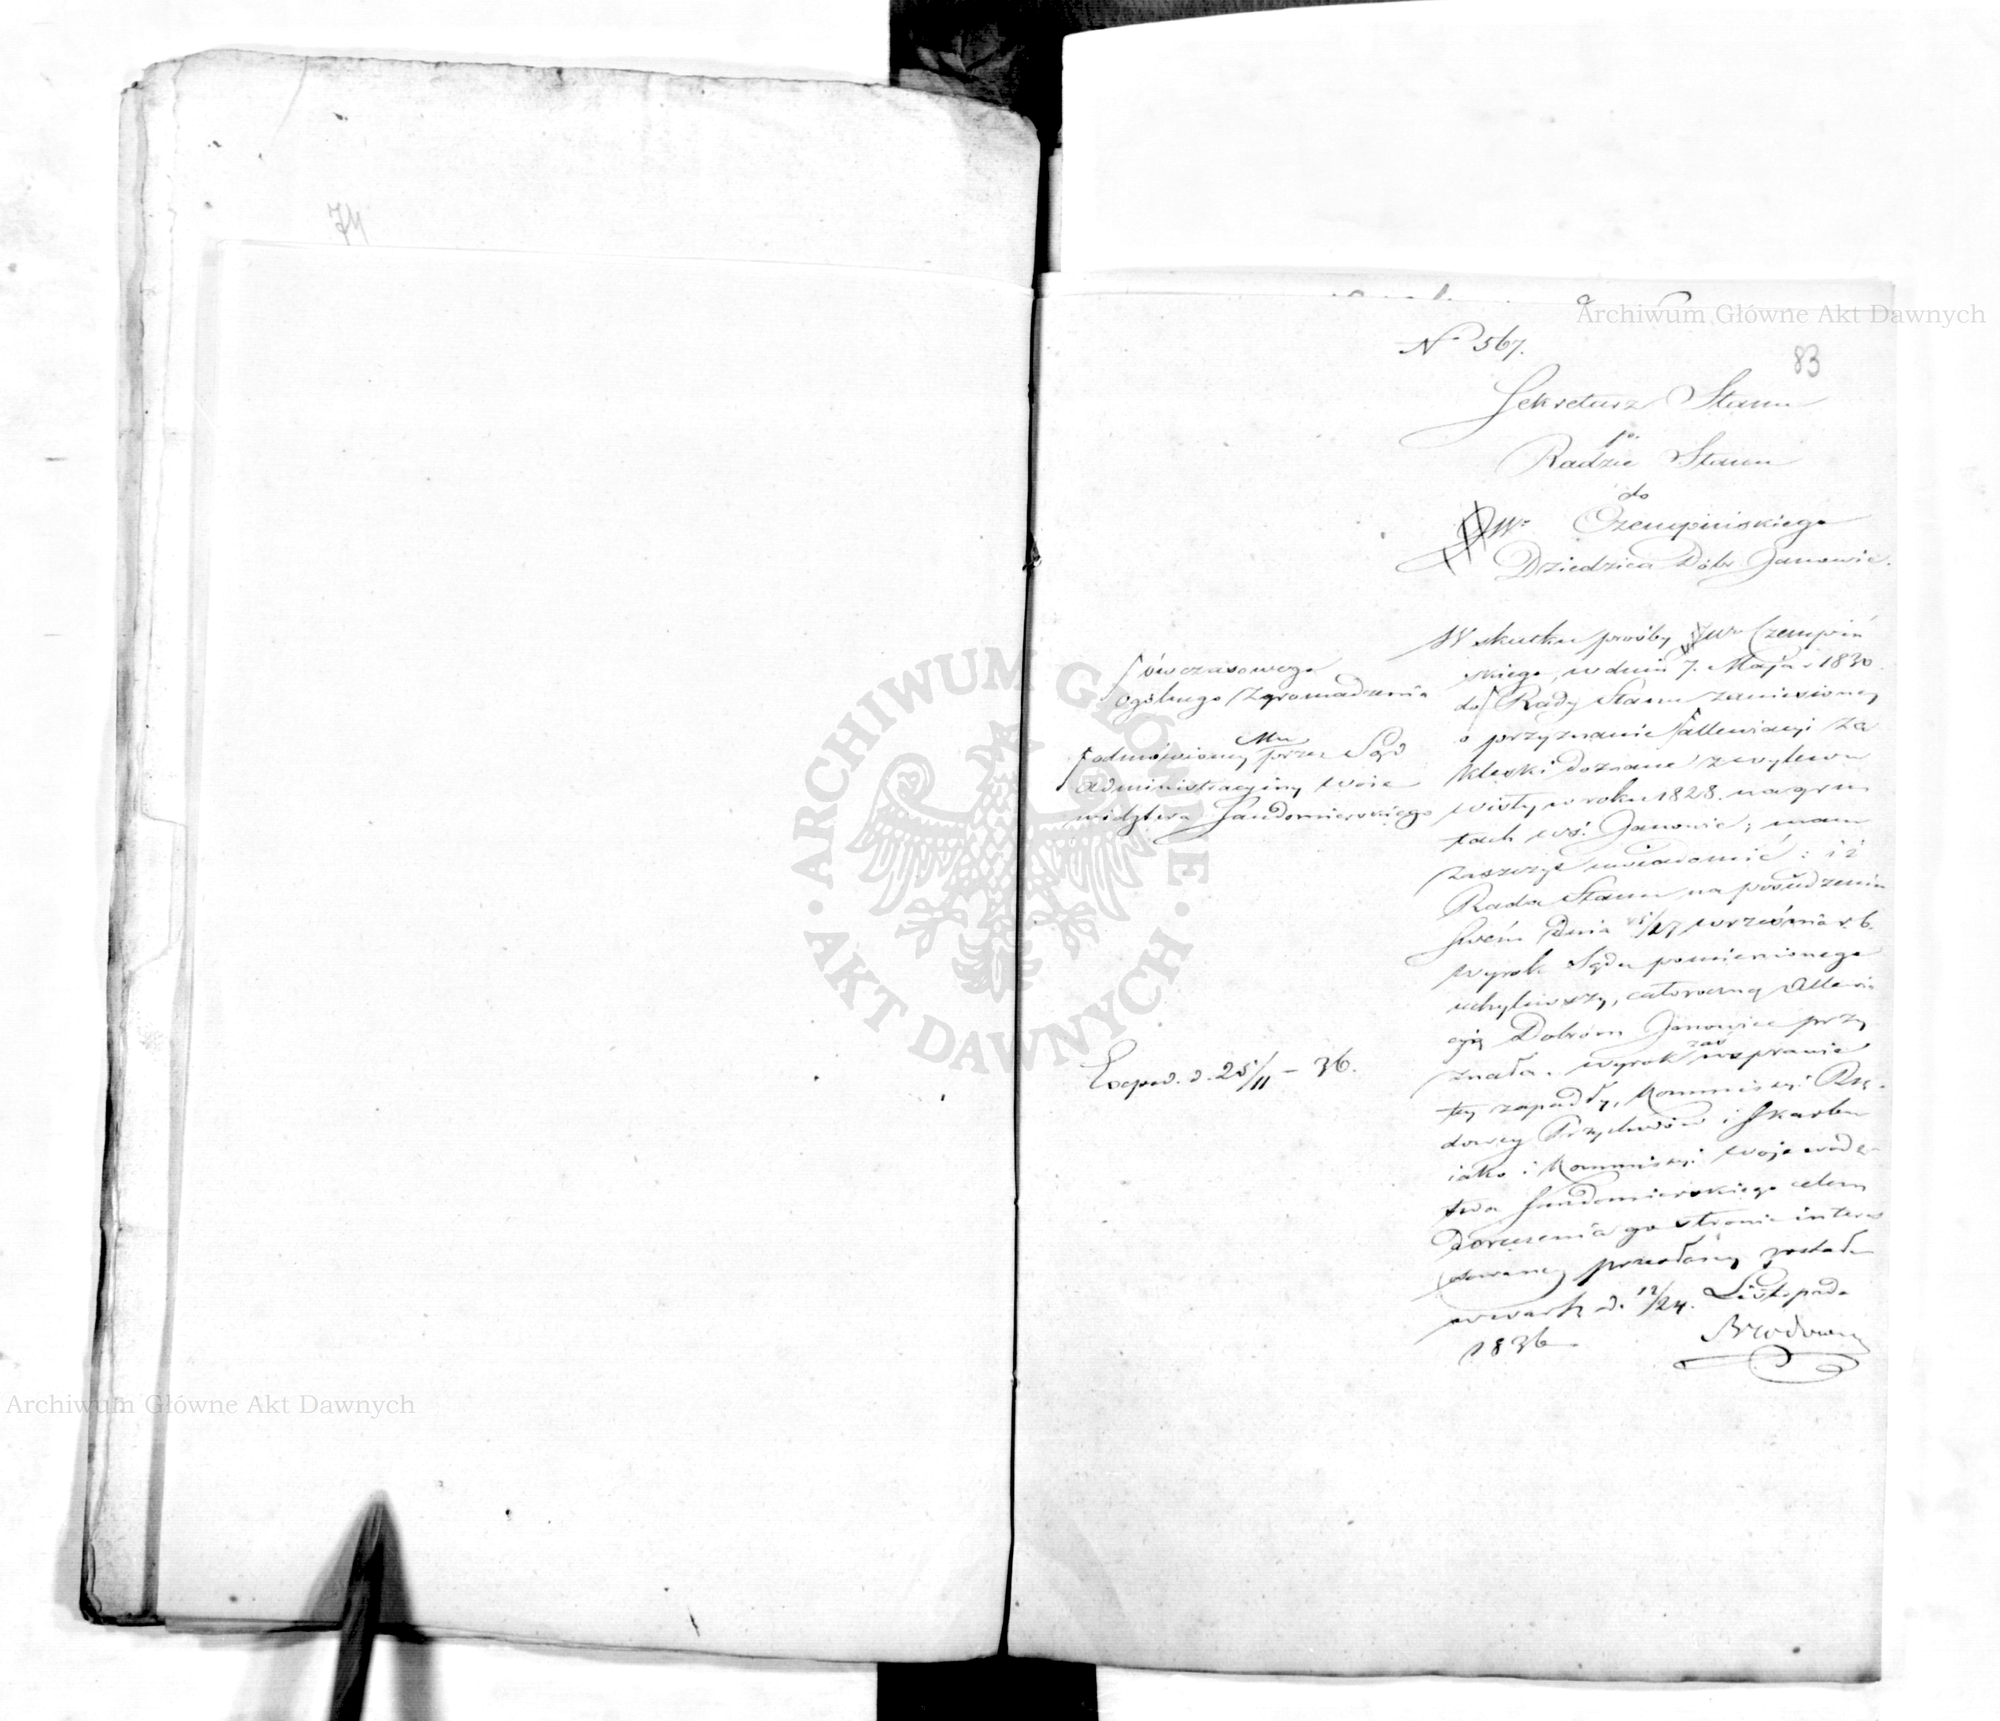 74
Archiwum Główne Akt Dawnych
No 567.
83
Sekretarz Stanu
po.
Radzie Stanu
do
Wo Czempińskiego
Dziedzica Dóbr Janowic.
W skutku prośby Wo Czempiń
skiego, w dniu 7. Maja r 1830
do Rady Stanu zaniesioney
o przyznanie allewiacyi za
klęski doznane z wylewu
Wisły w roku 1828. na grun
tach wsi Janowic; mam
zaszczyt uwiadomić: iż
Rada Stanu na posiedzeniu
swém dnia 15/27 września r. b.
wyrok Sądu pomienionego
uchyliwszy, całoroczną Allewia
cyię Dobrom Janowice przy
znała. wyrok zaś w sprawie
tey zapadły, Kommissyi Rzą-
dowey Przychodów i Skarbu
iako i Kommissyi Wojewódz-
twa Sandomierskiego celem
doręczenia go stronie intere
sowaney przesłany został
w Warsz. d. 12/24. Listopada
1836
Brodowski
ówczasowego
ogólnego Zgromadzenia
odmówioney Mu przez Sąd
Administracyiny Woie
wództwa Sandomierskiego
Exped. d. 25/11 – 36.
ARCHIWUM GŁÓWNE
AKT DAWNYCH
Archiwum Główne Akt Dawnych